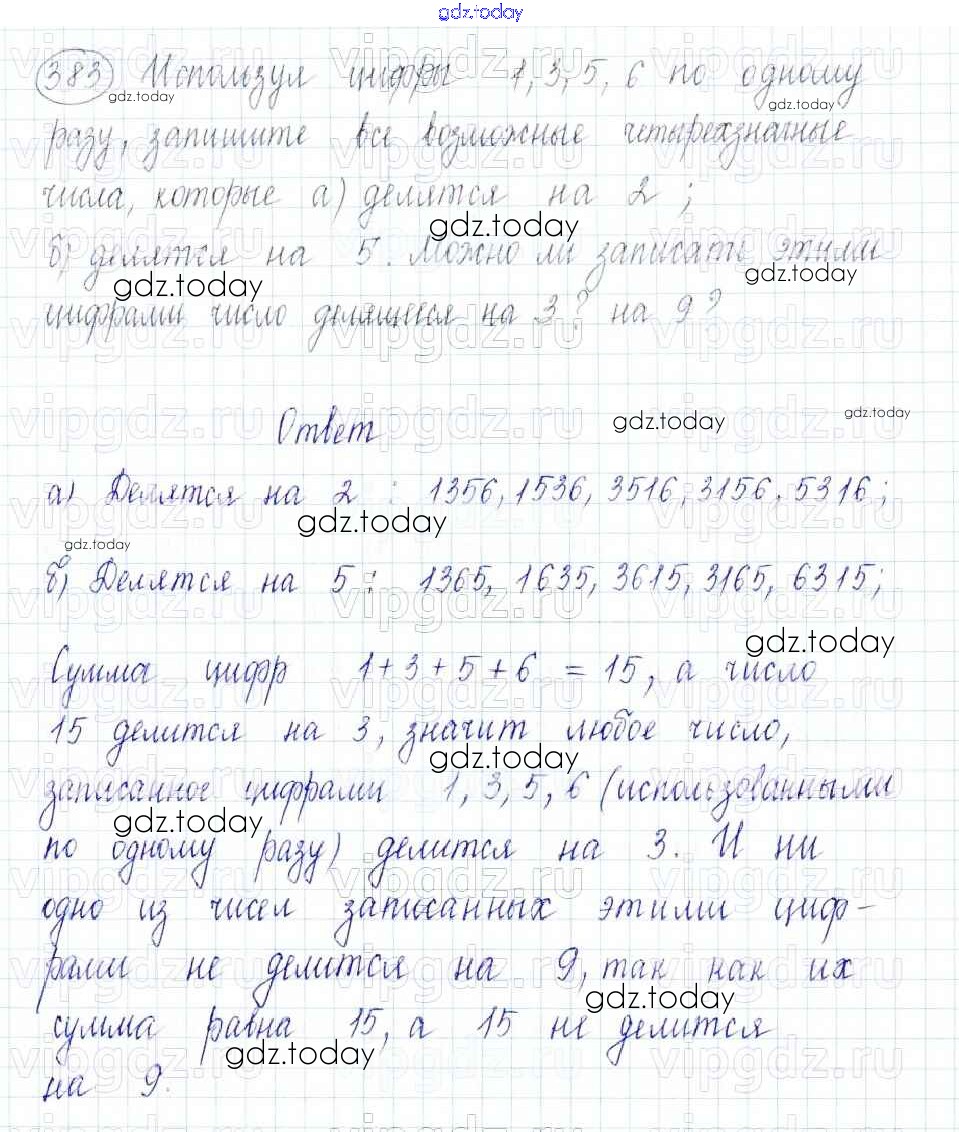 gdz.today
383 Используя цифры 1, 3, 5, 6 по одному
gdz.today
gdz.today
разу, запишите все возможные четырехзначные
числа, которые а) делятся на 2;
gdz.today
б) делятся на 5. Можно ли записать этими
gdz.today
gdz.today
цифрами число делящееся на 3? на 9?
vipgdz.ru
Ответ
gdz.today
gdz.today
а) Делятся на 2 : 1356, 1536, 3516, 3156. 5316;
gdz.today
gdz.today
б) Делятся на 5 : 1365, 1635, 3615, 3165, 6315;
gdz.today
Сумма цифр 1+3+5+6 = 15, а число
15 делится на 3, значит любое число,
gdz.today
записанное цифрами 1, 3, 5, 6 (использованными
gdz.today
по одному разу) делится на 3. И ни
одно из чисел записанных этими циф-
рами не делится на 9, так как их
gdz.today
сумма равна 15, а 15 не делится
gdz.today
на 9.